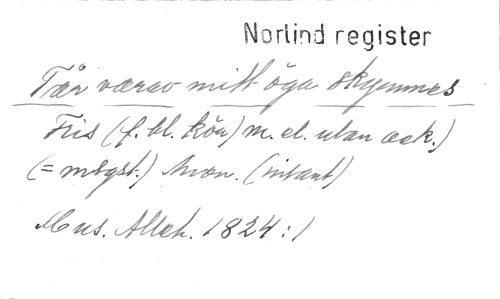 Norlind register
Tår varav mitt öga skymmes
Tris (f. bl. kör) m. el. utan ack.)
(= motst.)
Mus. Alleh. 1824:1